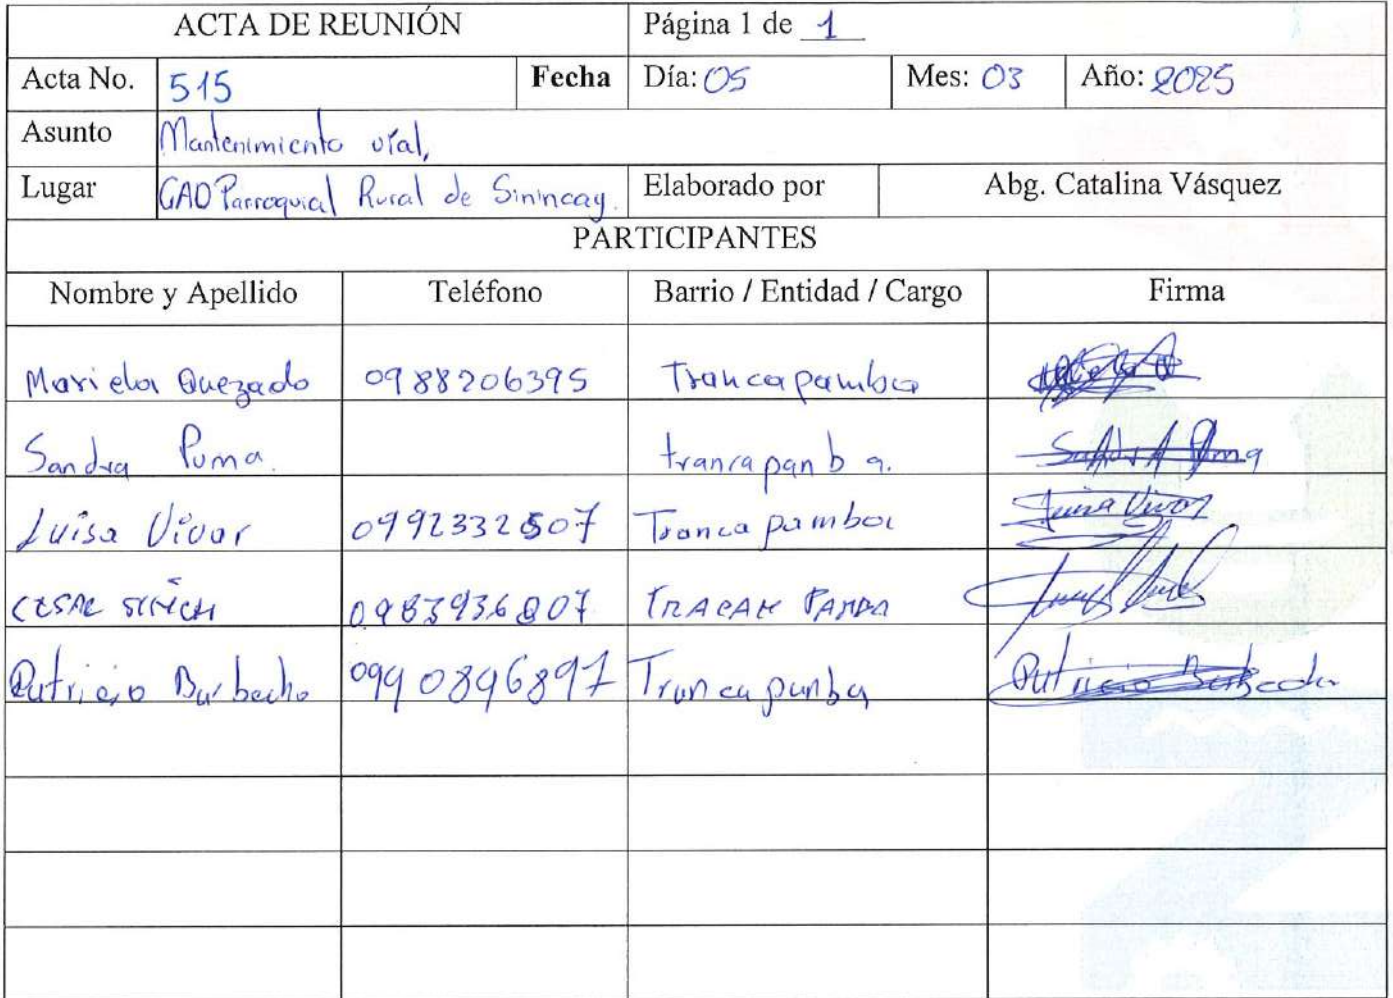 ACTA DE REUNIÓN Página 1 de 1
Acta No. 515 Fecha Día: 05 Mes: 03 Año: 2025
Asunto Mantenimiento vial,
Lugar GAD Parroquial Rural de Sinincay. Elaborado por Abg. Catalina Vásquez
PARTICIPANTES
Nombre y Apellido Teléfono Barrio / Entidad / Cargo Firma
Mariela Quezado 0988206395 Trancapamba
Sandra Puma. trancapanba. Sandra Puma
Luisa Vivar 0992332507 Trancapamba Luisa Vivar
CESAR 0983936807 TRACAM PAMBA
Patricio Burbecho 0990896897 Trancapanba Patricio